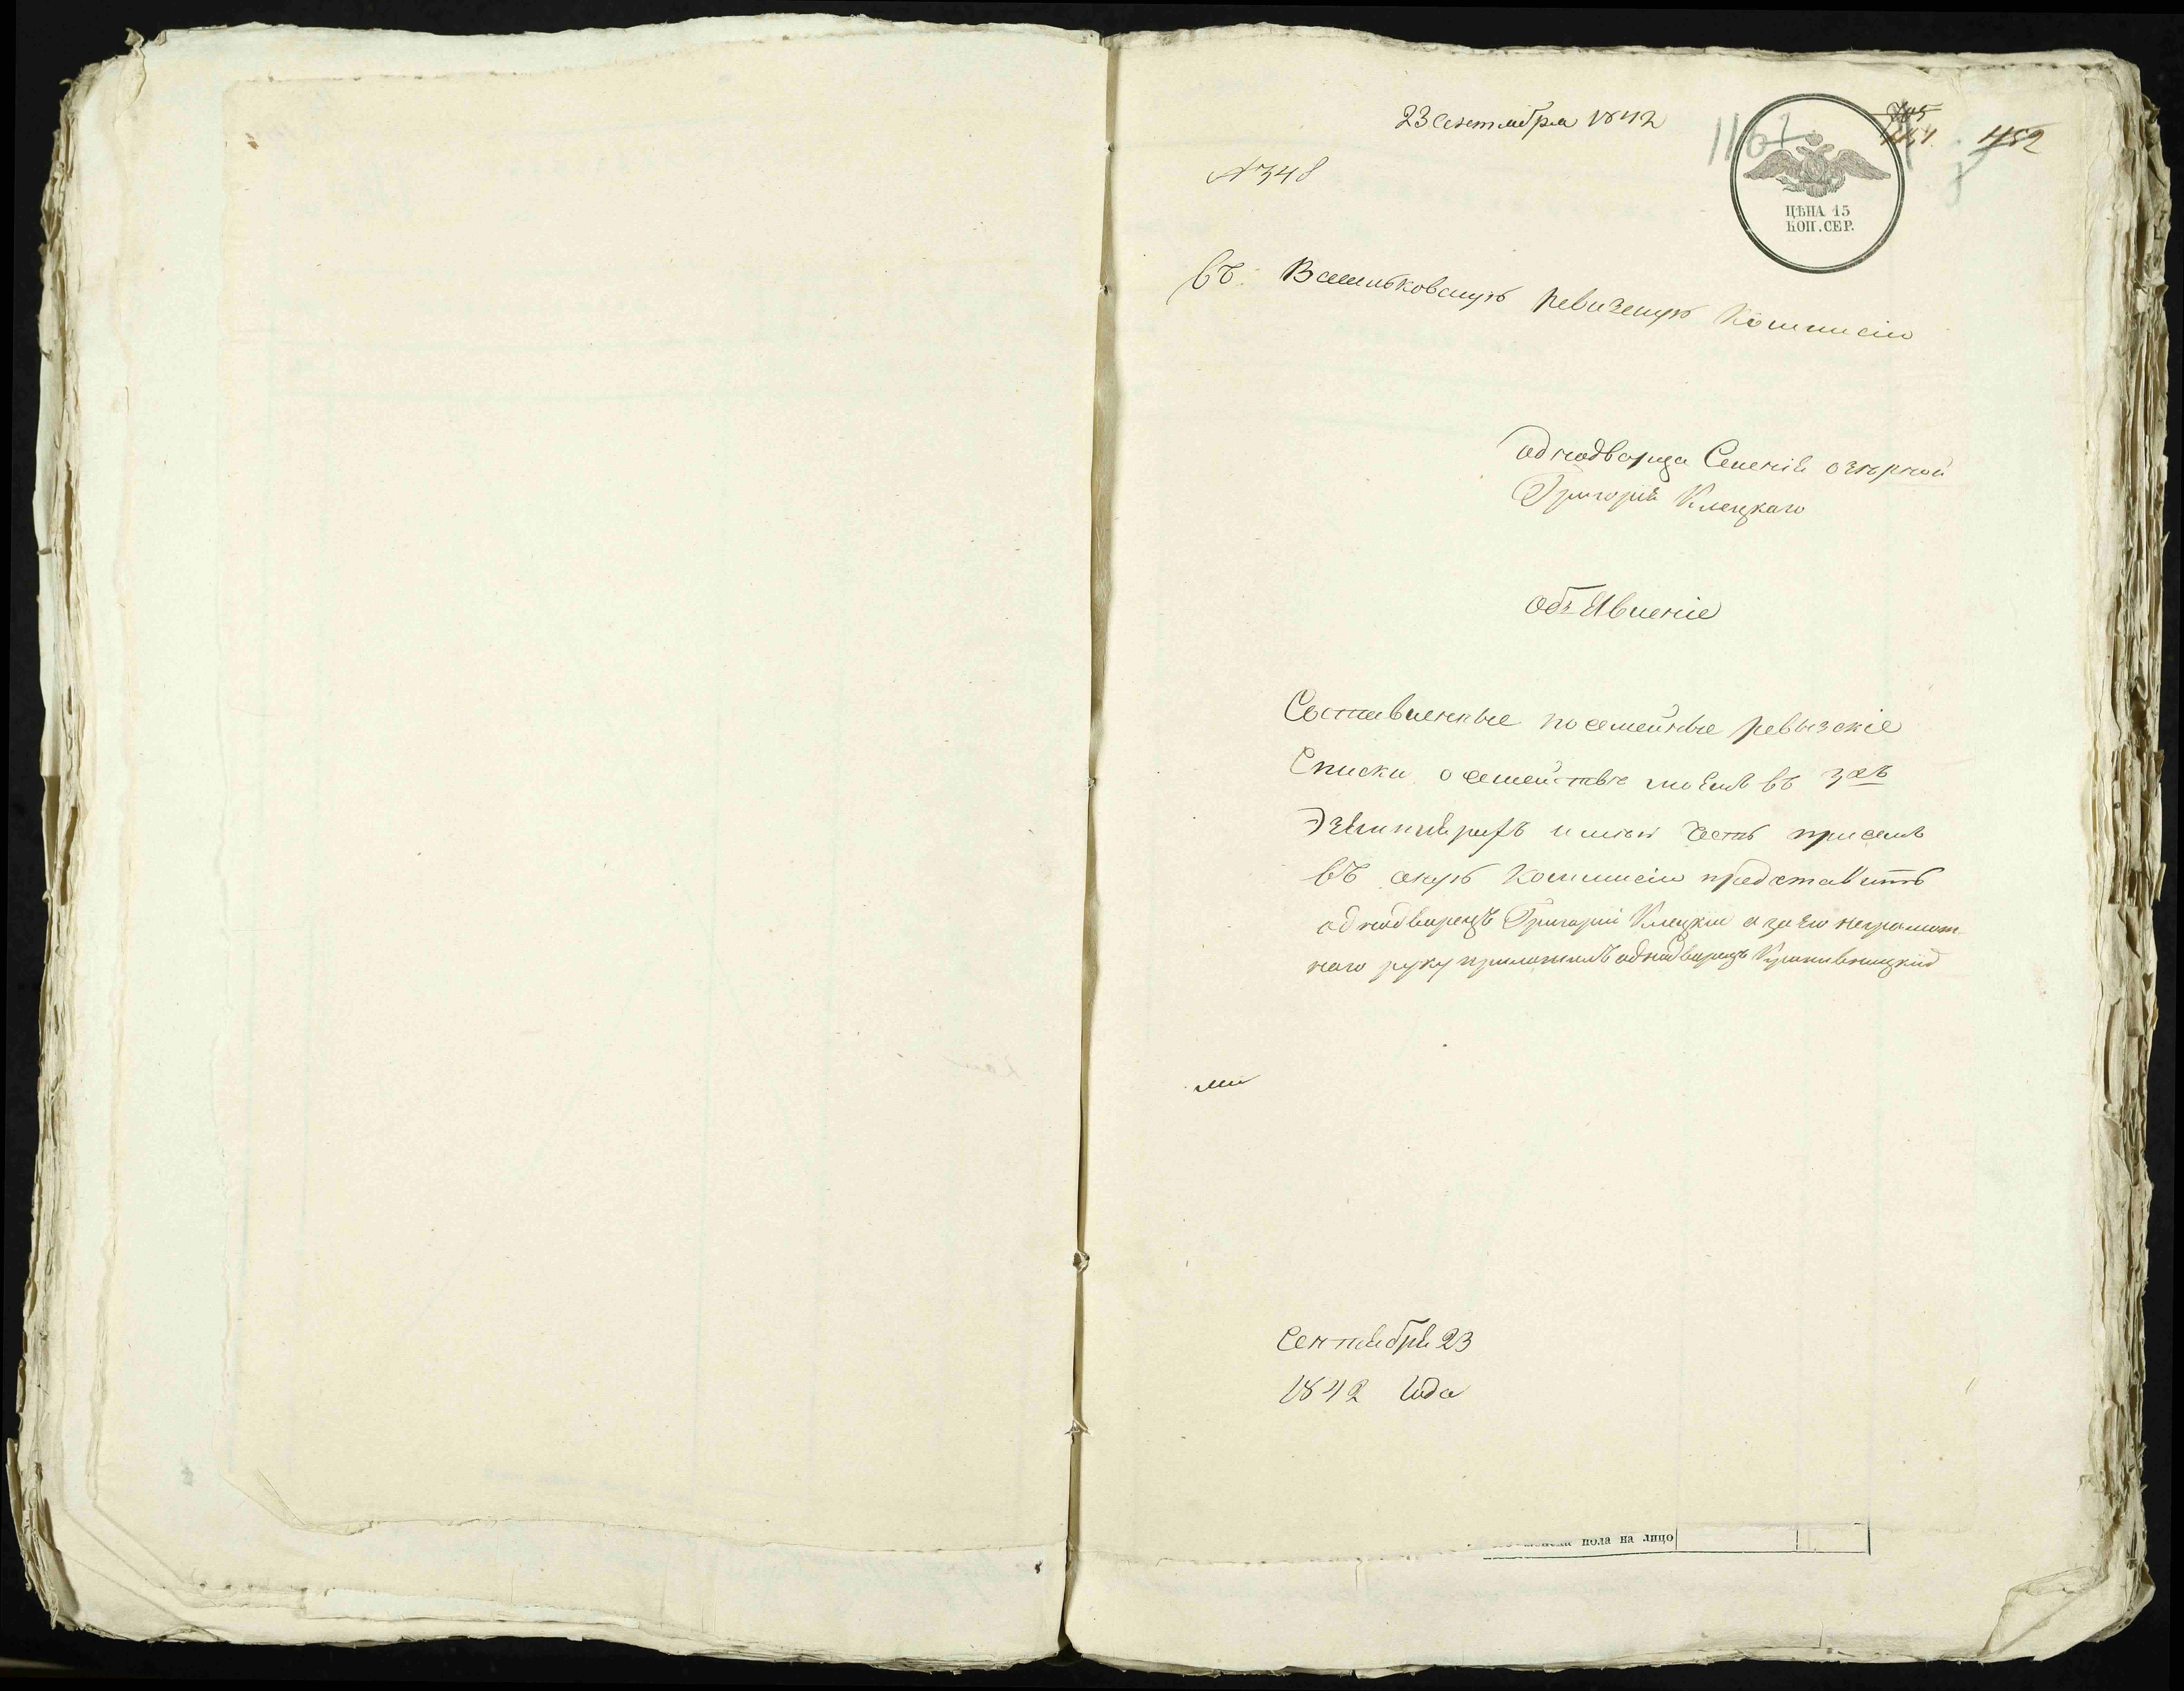 23 Сентября 1842
1161
705
1151
1152
№ 348
ЦѢНА 15
КОП. СЕР.
въ Васильковскую ревизскую Коммисію
однодворца Селенія озѣрной
Григорія Клецкаго
объявленіе
Составленные посемейные ревызскіе
Списки о семействѣ моемъ въ 3хъ
Экземплярахъ имѣю честь при семъ
въ оную Коммисію представить
однодворецъ Григорій Клецкій а за его неграмот-
наго руку приложилъ однодворецъ Крапивницкій
Сентября 23
1842 Года
пола на лицо